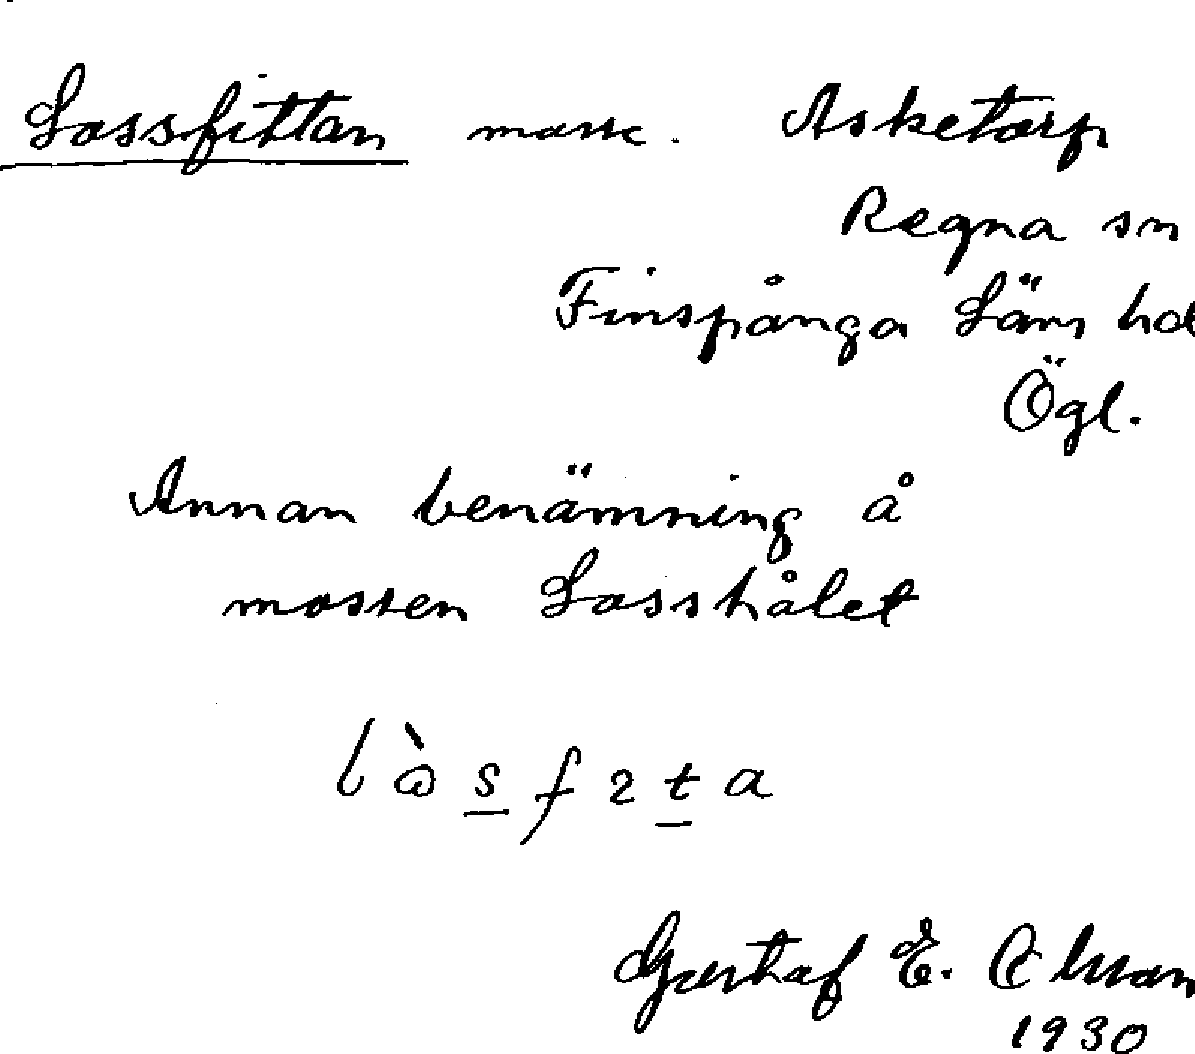 Lossfittan mosse. Asketorp
Regna sn
Finspånga Läns hd
Ögl.
Annan benämning å
mossen Losshålet
l ò s f 2 t a
Gustaf E.
1930